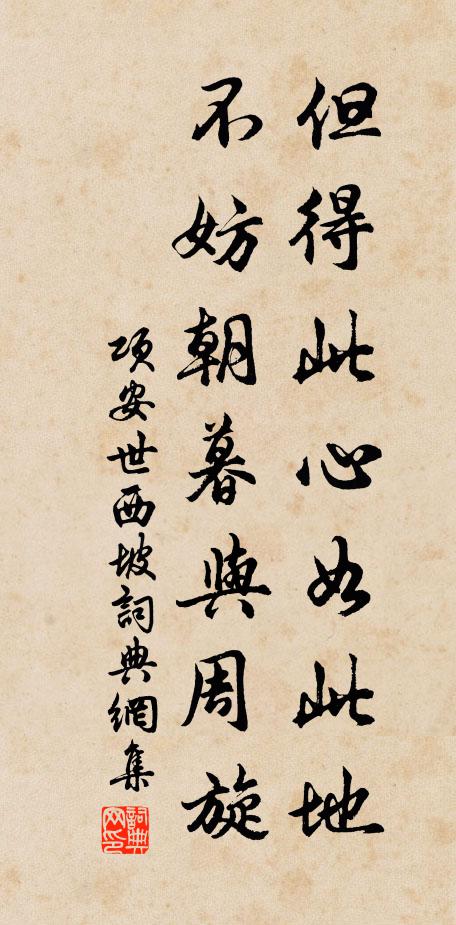 但得此心如此地
不妨朝暮與周旋
項安世西坡詞典網集
詞典网印